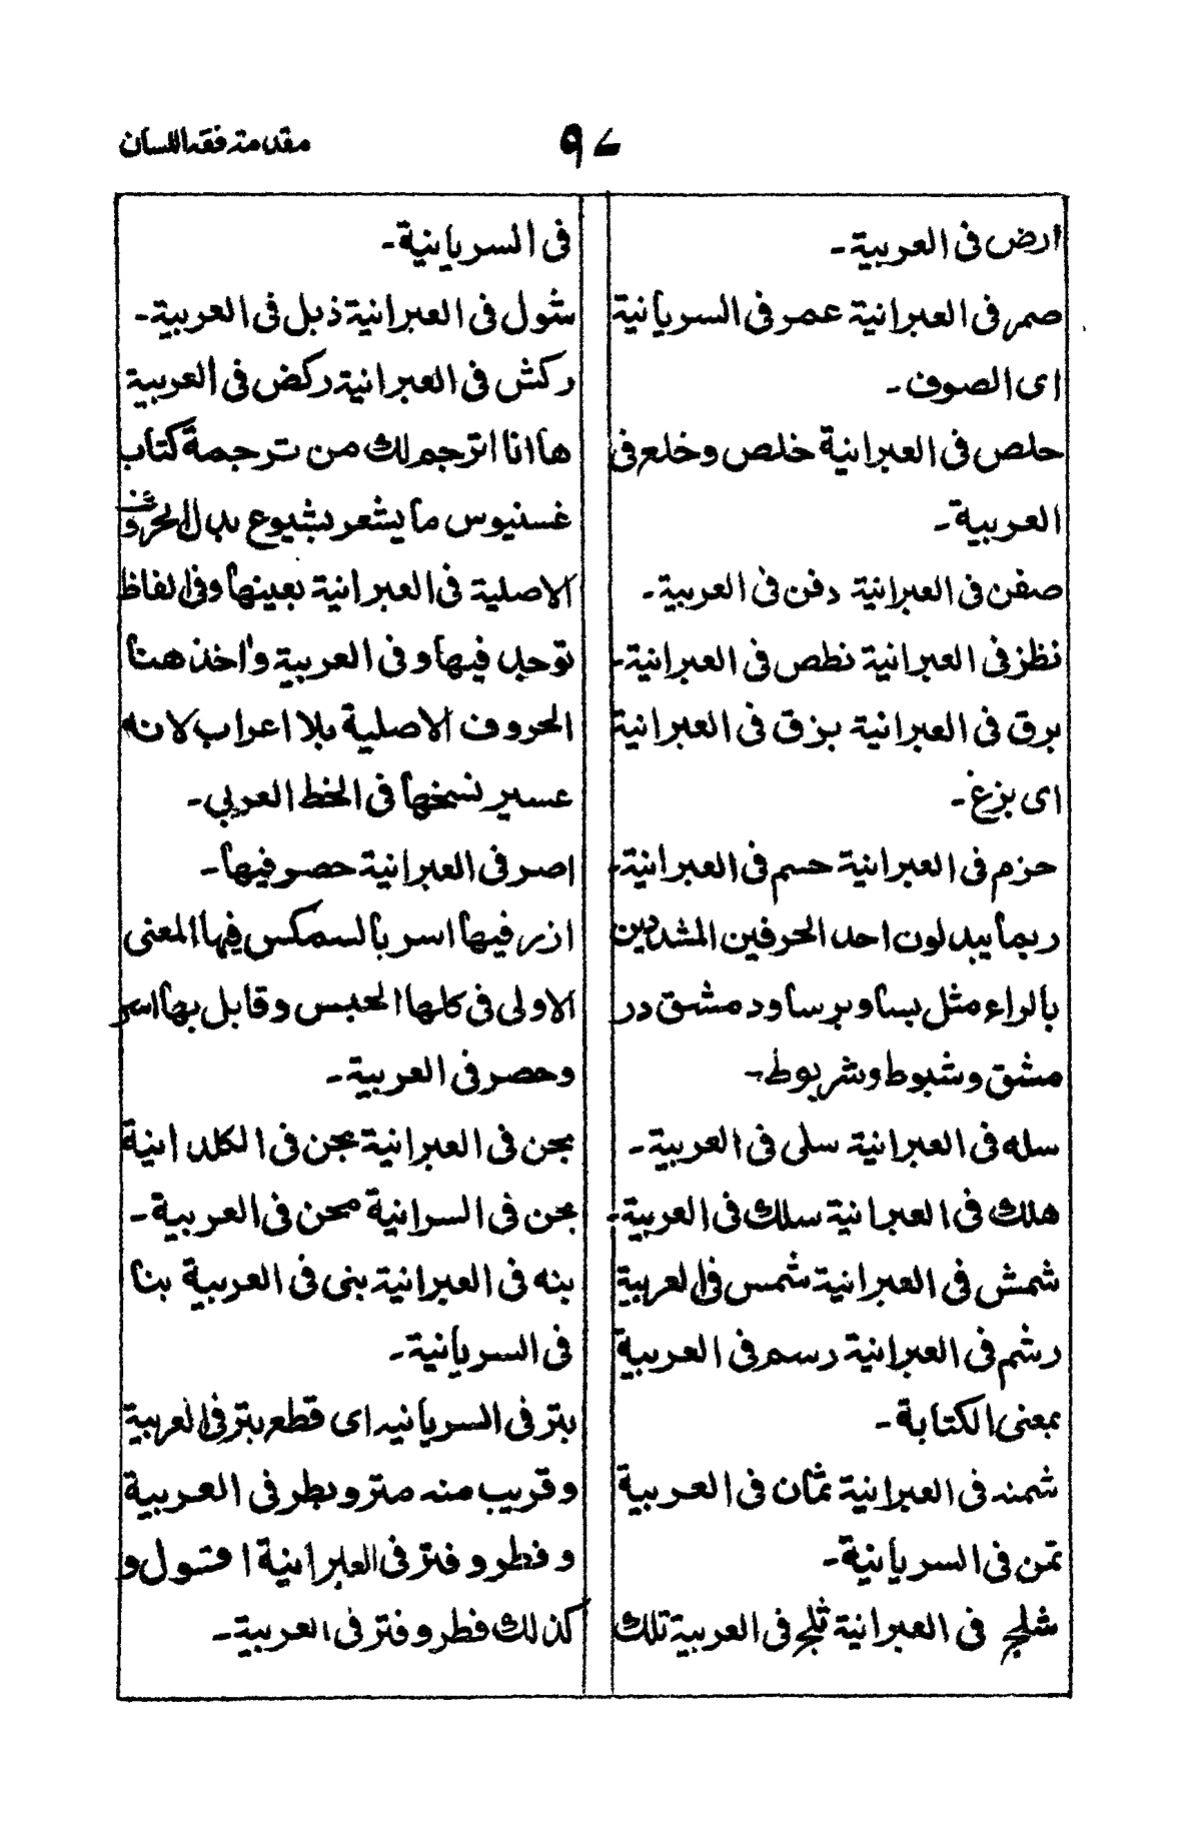 مقدمة فقه اللسان
٩٤
ارض فى العربية۔
صمر فى العبرانية عمر فى السريانية
اى الصوف۔
حلص فى العبرانية خلص وخلع فى
العربية۔
صفن فى العبرانية دفن فى العربية۔
نظز فى العبرانية نطص فى العبرانية۔
برق فى العبرانية بزق فى العبرانية
اى بزغ۔
حزم فى العبرانية حسم فى العبرانية۔
ربما يبدلون احد الحرفين المشددين
بالراء مثل بسا وبرسا ودمشق در
مشق وشبوط وشربوط۔
سله فى العبرانية سلى فى العربية۔
هلك فى العبرانية سلك فى العربية۔
شمش فى العبرانية شمس فى العربية
رشم فى العبرانية رسم فى العربية
بمعنى الكتابة۔
شمنه فى العبرانية ثمان فى العربية
تمن فى السريانية۔
شلج فى العبرانية ثلج فى العربية تلك
فى السريانية۔
شول فى العبرانية ذبل فى العربية۔
ركش فى العبرانية ركض فى العربية
ها انا اترجم لك من ترجمة كتاب
غسنيوس ما يشعر بشيوع بدل الحروف
الاصلية فى العبرانية بعينها وفى الفاظ
توجد فيها و فى العربية واخذ هنا
الحروف الاصلية بلا اعراب لانه
عسير نسخها فى الخط العربي۔
اصر فى العبرانية حصر فيها۔
ازر فيها اسر بالسمكس فيها المعنى
الاولى فى كلها الحبس وقابل بها اسر
وحصر فى العربية۔
بحن فى العبرانية بحن فى الكلدانية
بحن فى السرانية محن فى العربية۔
بنه فى العبرانية بنى فى العربية بنا
فى السريانية۔
بتر فى السريانيه اى قطع بتر فى العربية
وقريب منه متر وبطر فى العربية
و فطر و فتر فى العبرانية و
كذلك فطر و فتر فى العربية۔